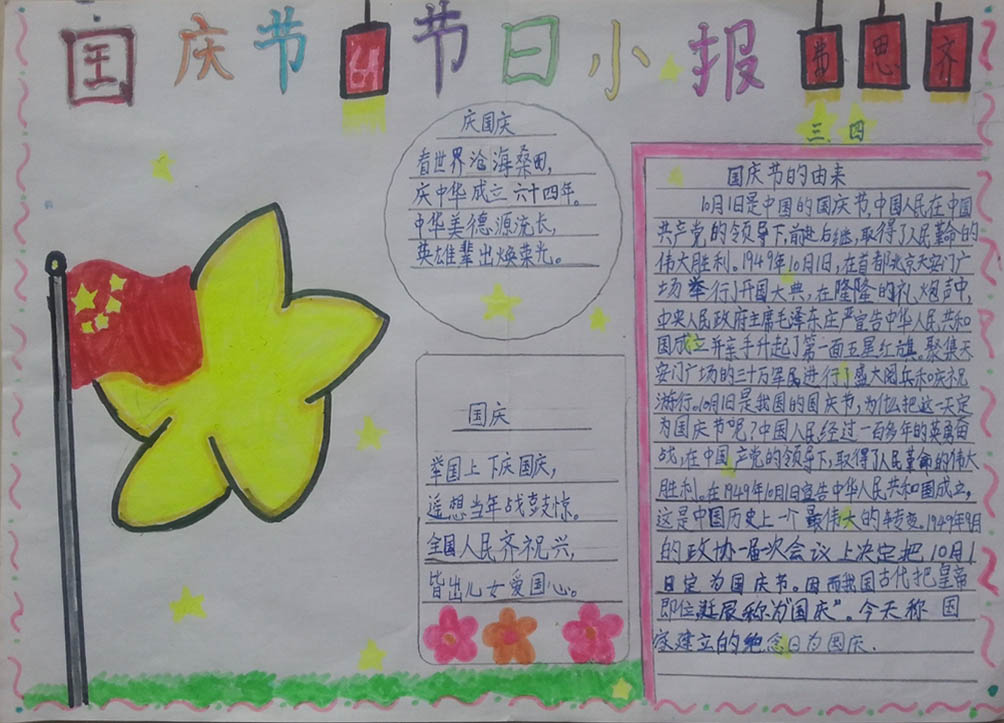 国庆节 节日小报 费思齐
三、四
庆国庆
看世界沧海桑田,
庆中华成立六十四年。
中华美德源流长,
英雄辈出焕荣光。
国庆
举国上下庆国庆,
遥想当年战鼓惊。
全国人民齐祝兴,
皆出儿女爱国心。
国庆节的由来
10月1日是中国的国庆节,中国人民在中国
共产党的领导下,前赴后继,取得了人民革命的
伟大胜利。1949年10月1日,在首都北京天安门广
场举行了开国大典,在隆隆的礼炮声中,
中央人民政府主席毛泽东庄严宣告中华人民共和
国成立并亲手升起了第一面五星红旗。聚集天
安门广场的三十万军民进行了盛大阅兵和庆祝
游行。10月1日是我国的国庆节,为什么把这一天定
为国庆节呢?中国人民经过一百多年的英勇奋
战,在中国产党的领导下,取得了人民革命的伟大
胜利。在1949年10月1日宣告中华人民共和国成立,
这是中国历史上一个最伟大的转变。1949年9月
的政协一届一次会议上决定把10月1
日定为国庆节。因而我国古代把皇帝
即位诞辰称为“国庆”。今天称国
家建立的纪念日为国庆.